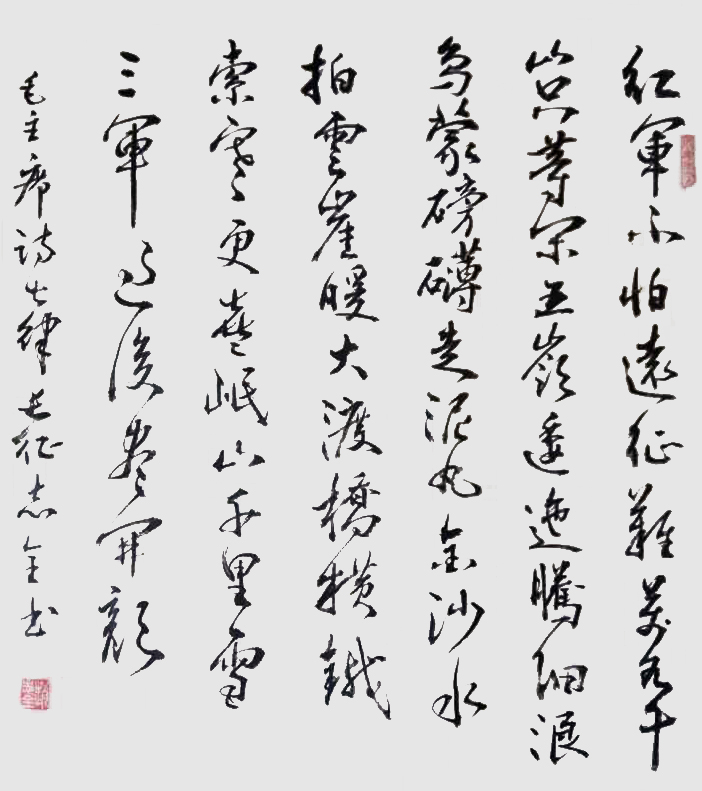 紅軍不怕遠征難萬水千
山只等閑五嶺逶迤騰細浪
烏蒙磅礴走泥丸金沙水
拍雲崖暖大渡橋横鐵
索寒更喜岷山千里雪
三軍過後盡開顔
毛主席詩七律長征志全书